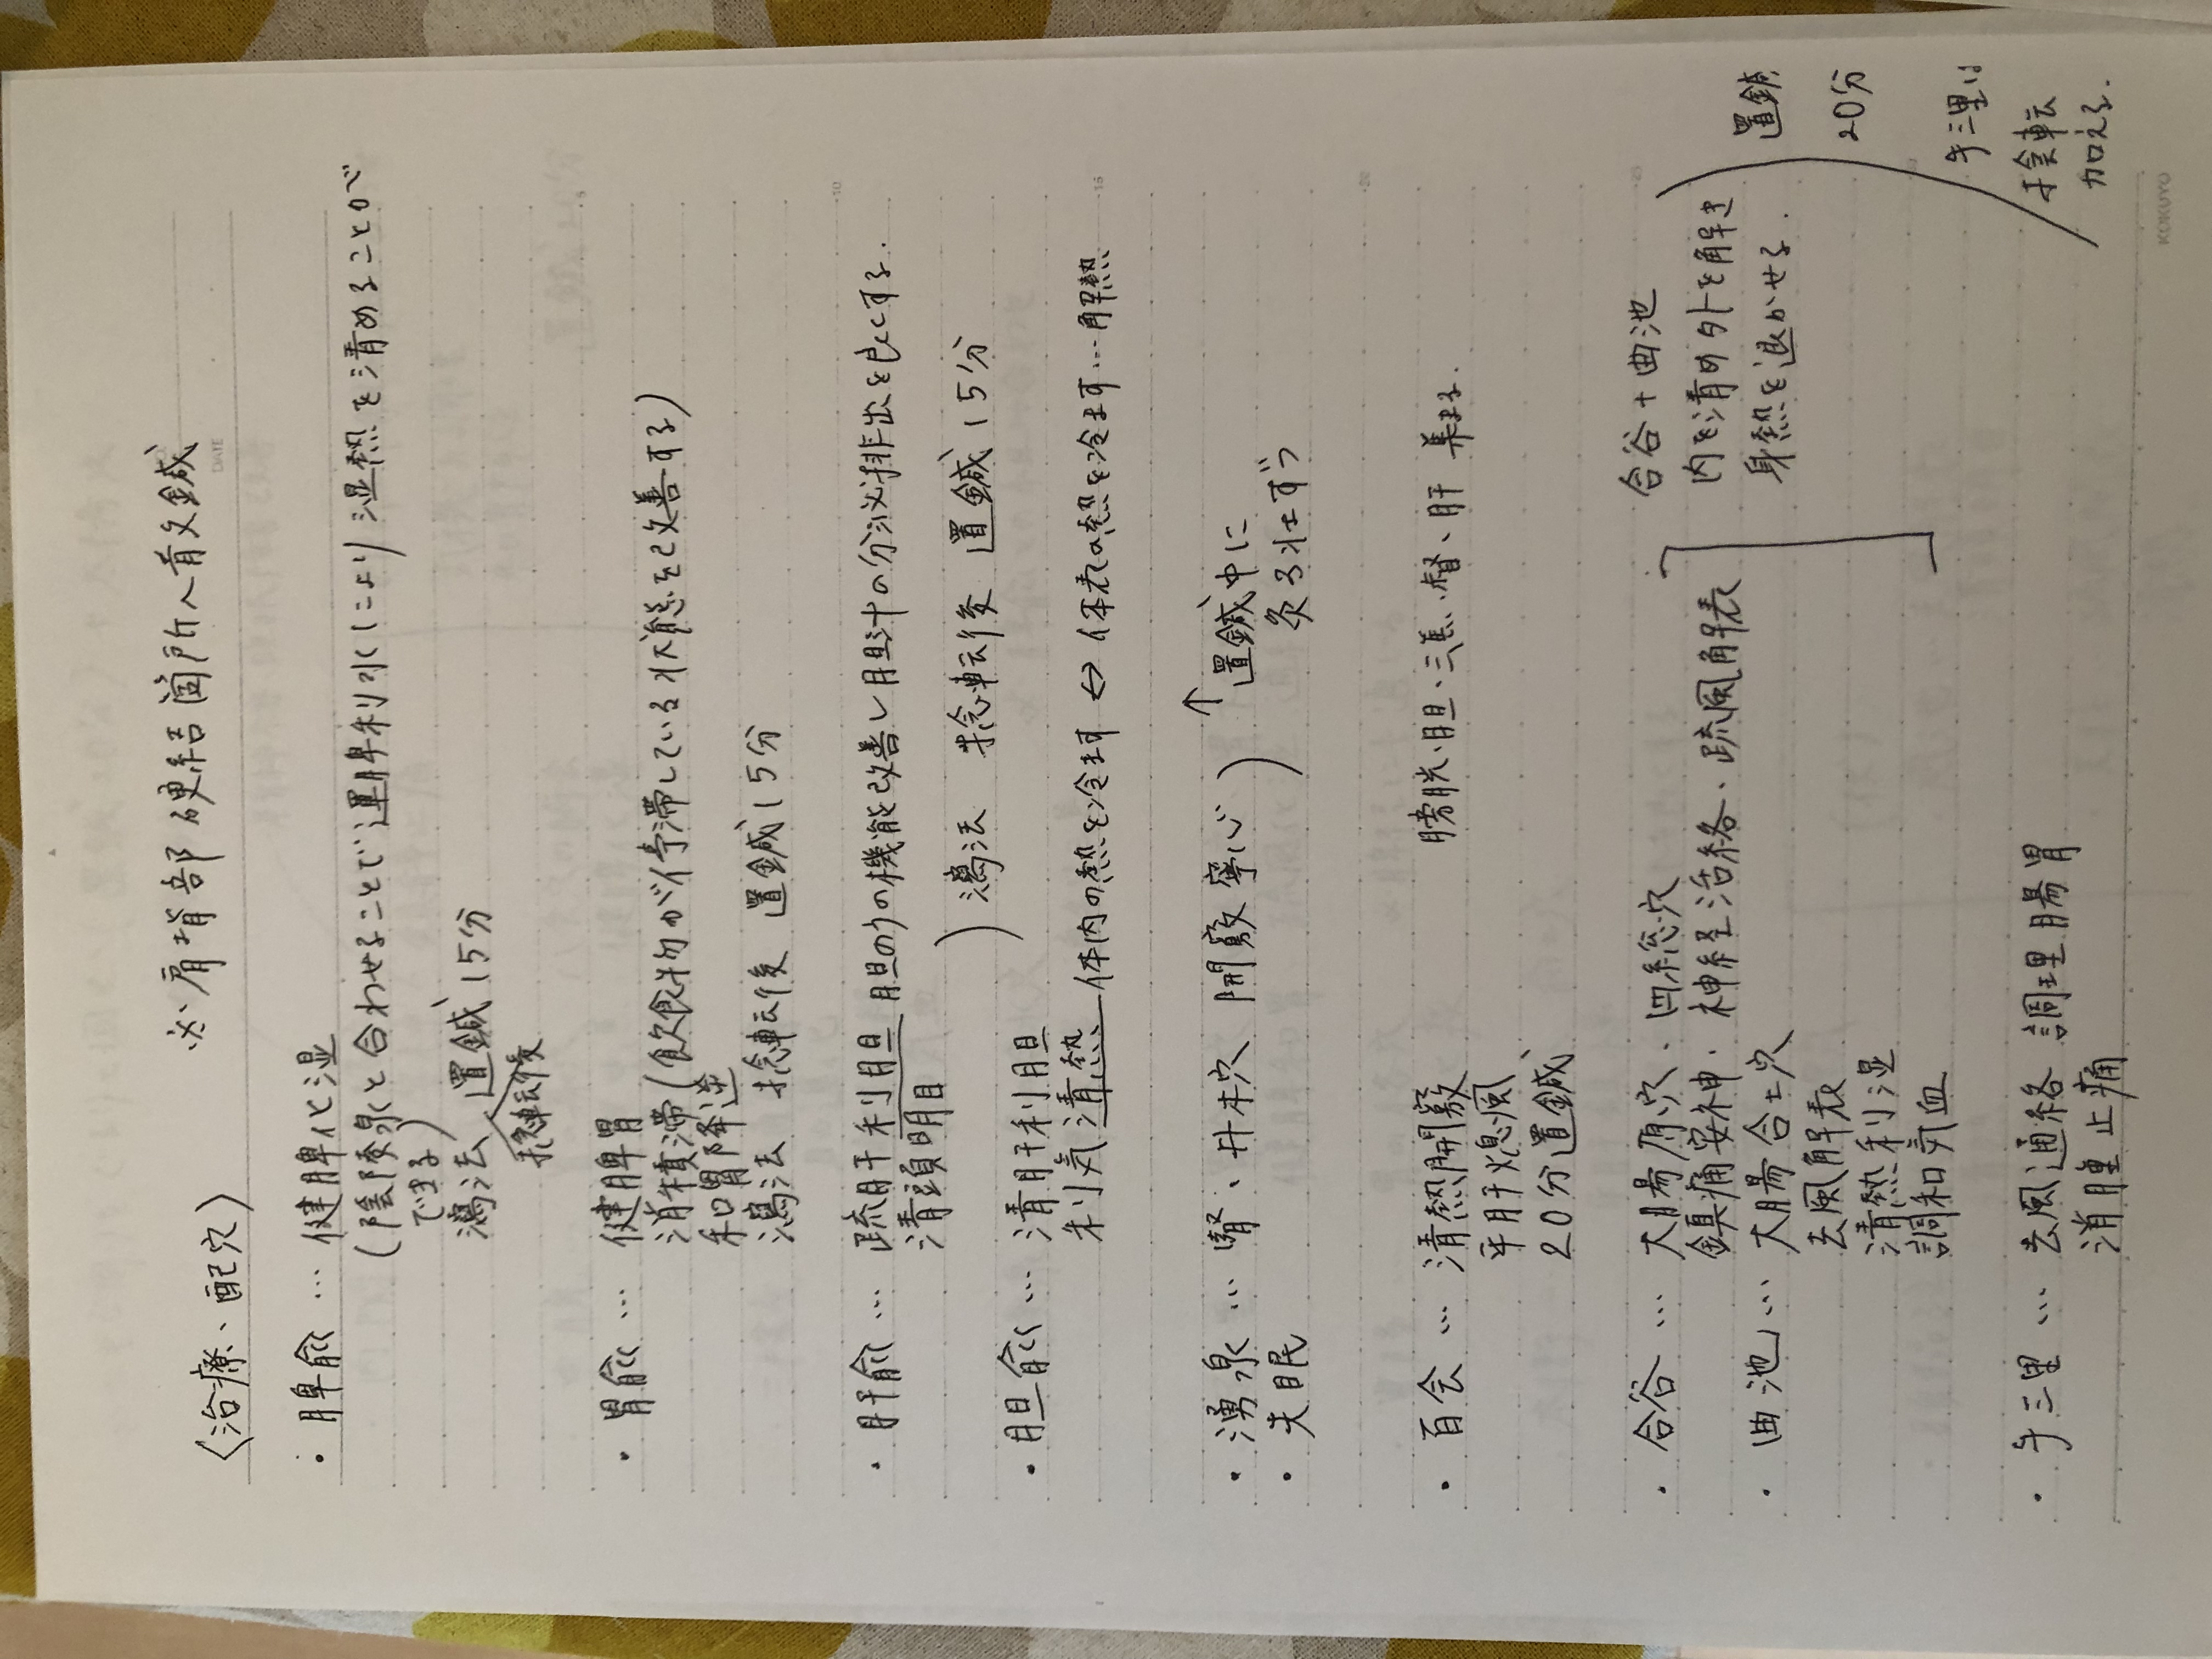 〈治療、配穴〉　※肩背部硬結箇所へ育文鍼
・脾俞 … 健脾化湿
(陰陵泉と合わせることで運脾利水により湿熱を清めることが
できる)
瀉法 置鍼15分
捻転後
・胃俞 … 健脾胃
消積滞(飲食物が停滞している状態を改善する)
和胃降逆
瀉法 捻転後 置鍼15分
・肝俞 … 疏肝利胆 胆のうの機能改善し胆汁の分泌排出を良くする.
清頭明目
瀉法 捻転後 置鍼15分
・胆俞 … 清肝利胆
利気清熱 体内の熱を冷ます ⇔ 体表の熱を冷ます…解熱
・湧泉 … 腎、井穴 開竅寧心
・失眠
↑
置鍼中に
灸3壮ずつ
・百会 … 清熱開竅 膀胱、胆、三焦、督、肝 基まる.
平肝熄風
20分置鍼
・合谷 … 大腸原穴、四総穴
鎮痛安神、神経活絡、疏風解表
・曲池 … 大腸合土穴
去風解表
清熱利湿
調和気血
合谷+曲池
内を清め外を解き
身熱を退かせる.
・手三里 … 去風通絡 調理腸胃
消腫止痛
置鍼
20分
手三里は
捻転
加える.
DATE
10
15
20
25
KOKUYO